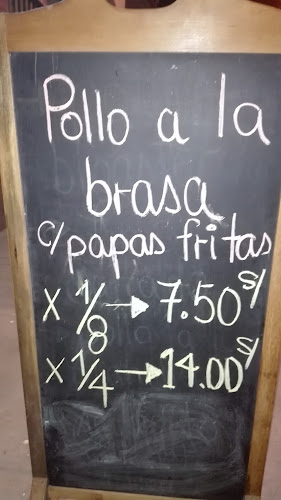 Pollo a la
brasa
c/papas fritas
x 1/8 → 7.50 S/
x 1/4 → 14.00 S/